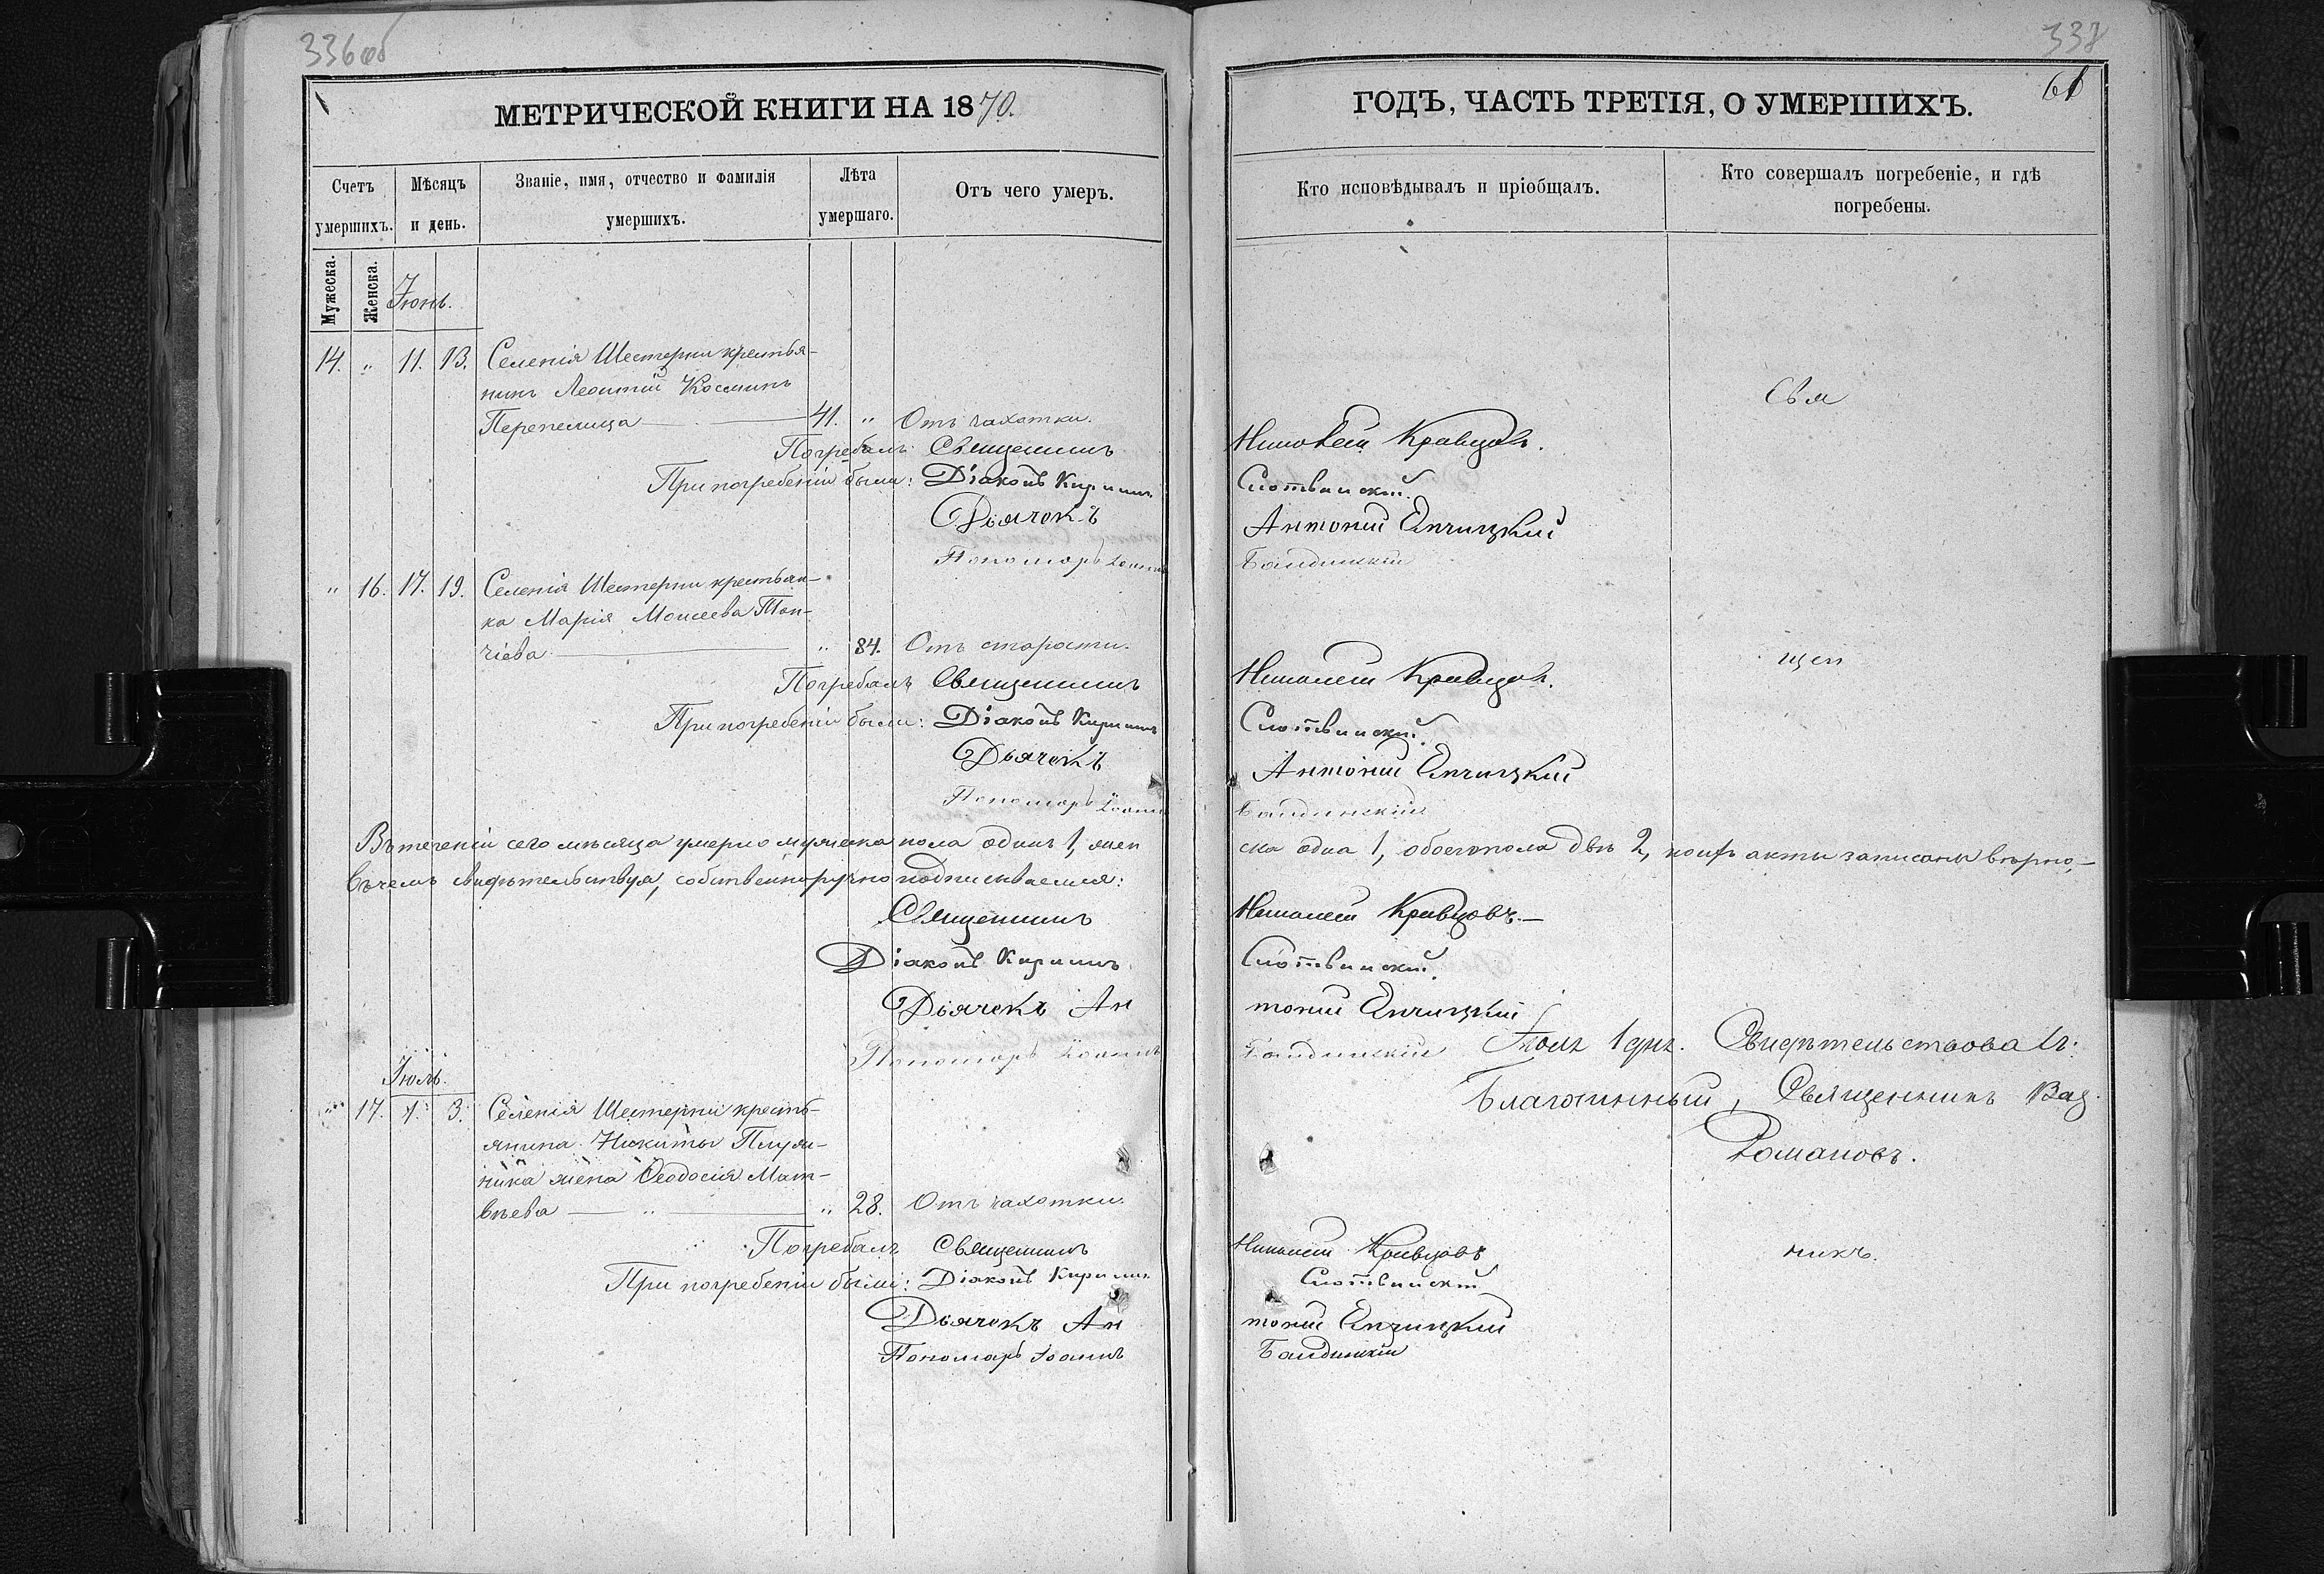 336об
МЕТРИЧЕСКОЙ КНИГИ НА 1870.
Счетъ умершихъ.
Мѣсяцъ и день.
Званіе, имя, отчество и фамилія умершихъ.
Лѣта умершаго.
Отъ чего умеръ.
Мужеска.
Женска.
Іюнь.
14. " 11. 13. Селенія Шестерни крестья-
нинъ Леонтій Косминъ
Перепелица — 41. " Отъ чахотки.
Погребалъ Священникъ
При погребеніи были: Діаконъ Кириллъ
Дьячокъ
Пономарь Іоаннъ
" 16. 17. 19. Селенія Шестерни крестьян-
ка Марія Моисеева Топ-
чіева — " 84. Отъ старости.
Погребалъ Священникъ
При погребеніи были: Діаконъ Кириллъ
Дьячекъ
Пономарь Іоаннъ
Въ теченіи сего мѣсяца умерло мужеска пола одинъ 1, жен
въ чемъ свидѣтельствуя, собственноручно подписываемся:
Священникъ
Діаконъ Кириллъ
Дьячекъ Ан
Пономарь Іоаннъ
Іюль.
" 17. 1. 3. Селенія Шестерни кресть-
янина Никиты Плуж-
ника жена Ѳеодосія Мат-
вѣева — " — " 28. Отъ чахотки.
Погребалъ Священникъ
При погребеніи были: Діаконъ Кириллъ
Дьячекъ Ан
Пономарь Іоаннъ
338
61
ГОДЪ, ЧАСТЬ ТРЕТІЯ, О УМЕРШИХЪ.
Кто исповѣдывалъ и пріобщалъ.
Кто совершалъ погребеніе, и гдѣ погребены.
Свя
Кравцовъ.
Слотвинскій.
Антоній
Бандинскій
щен
Кравцовъ.
Слотвинскій.
Антоній
Бандинскій
ска одна 1, обоего пола двѣ 2, коихъ акты записаны вѣрно,—
Кравцовъ.—
Слотвинскій.
тоній
Бандинскій
Іюля 1 дня. Свидѣтельствовалъ:
Благочинный, Священникъ Вад.
Романовъ.
Кравцовъ
никъ.
Слотвинскій
тоній
Бандинскій